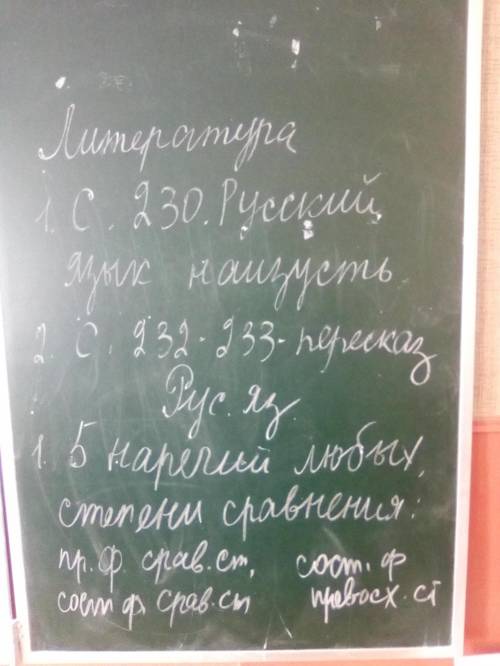 Литература
1. С. 230. Русский
язык наизусть
2. С. 232-233-пересказ
Рус. яз.
1. 5 наречий любых,
степени сравнения:
пр. ф. срав. ст, сост. ф
сост ф срав. ст превосх. ст